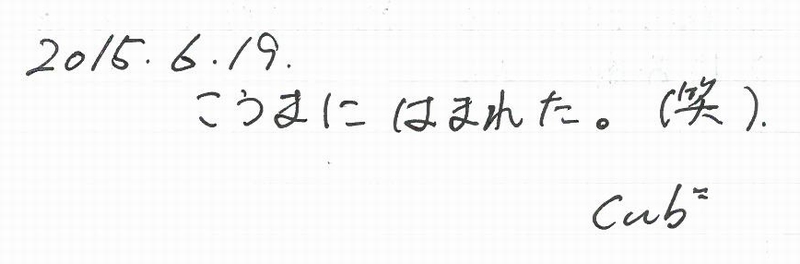 2015.6.19.
こうまにはまれた。(笑).
Cub=